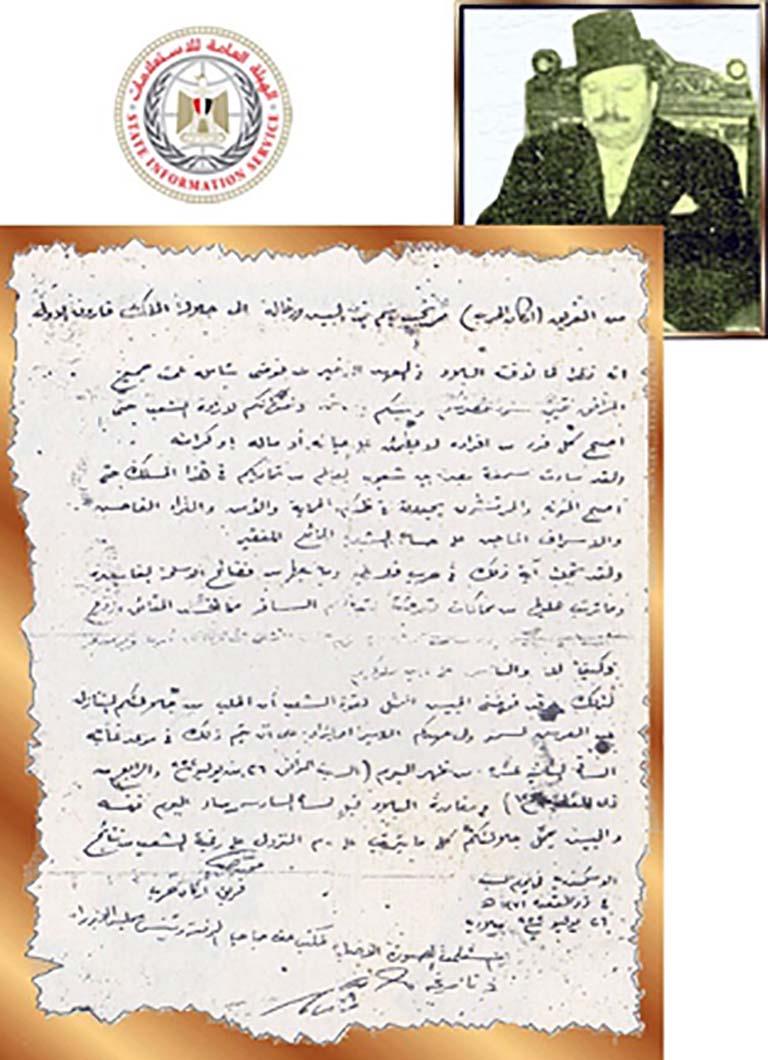 الهيئة العامة للاستعلامات
STATE INFORMATION SERVICE
من الفريق (أركان الحرب) محمد نجيب باسم ضباط الجيش ورجاله إلى جلالة الملك فاروق الأول
انه نظرا لما لاقته البلاد في العهد الأخير من فوضى شاملة عمت جميع
المرافق نتيجة سوء تصرفكم وعبثكم وامتهانكم لإرادة الشعب حتى
أصبح كل فرد من أفراده لا يطمئن على حياته أو ماله أو كرامته
ولقد ساءت سمعة مصر بين شعوب العالم من تماديكم في هذا المسلك حتى
أصبح الخونة والمرتشون يجدون في ظلكم الحماية والأمن والثراء الفاحش
والإسراف الماجن على حساب الشعب الجائع الفقير
ولقد تجلت آية ذلك في حرب فلسطين وما تبعها من فضائح الأسلحة الفاسدة
وما ترتب عليها من محاكمات تعرضت لتدخلكم السافر مما أفسد الحقائق وزعزع
لذلك قد فوضني الجيش الممثل لقوة الشعب أن أطلب من جلالتكم التنازل
عن العرش لسمو ولي عهدكم الأمير أحمد فؤاد على أن يتم ذلك في موعد غايته
الساعة الثانية عشرة من ظهر اليوم (السبت الموافق ٢٦ من يوليو ١٩٥٢ والرابع من
ذي القعدة ١٣٧١) ومغادرة البلاد قبل الساعة السادسة من مساء اليوم نفسه
والجيش يحمل جلالتكم كل ما يترتب على عدم النزول على رغبة الشعب من نتائج
فريق أركان حرب
الاسكندرية في يوم السبت
٤ ذو القعدة ١٣٧١ هـ
٢٦ يوليو ١٩٥٢ ميلادية